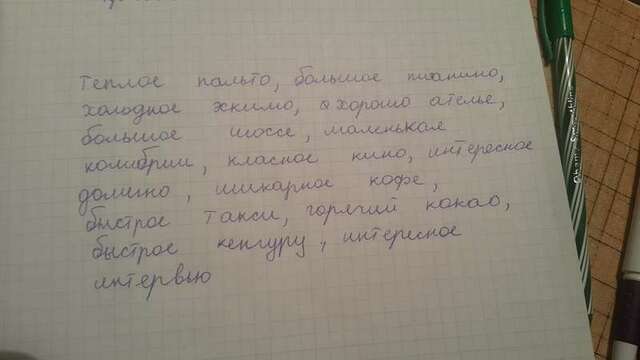 теплое пальто, большое пианино,
холодное эскимо, хорошо ателье,
большое шоссе, маленькая
колибрии, класное кино, интересное
домино, шикарное кофе,
быстрое такси, горячий какао,
быстрое кенгуру, интересное
интервью